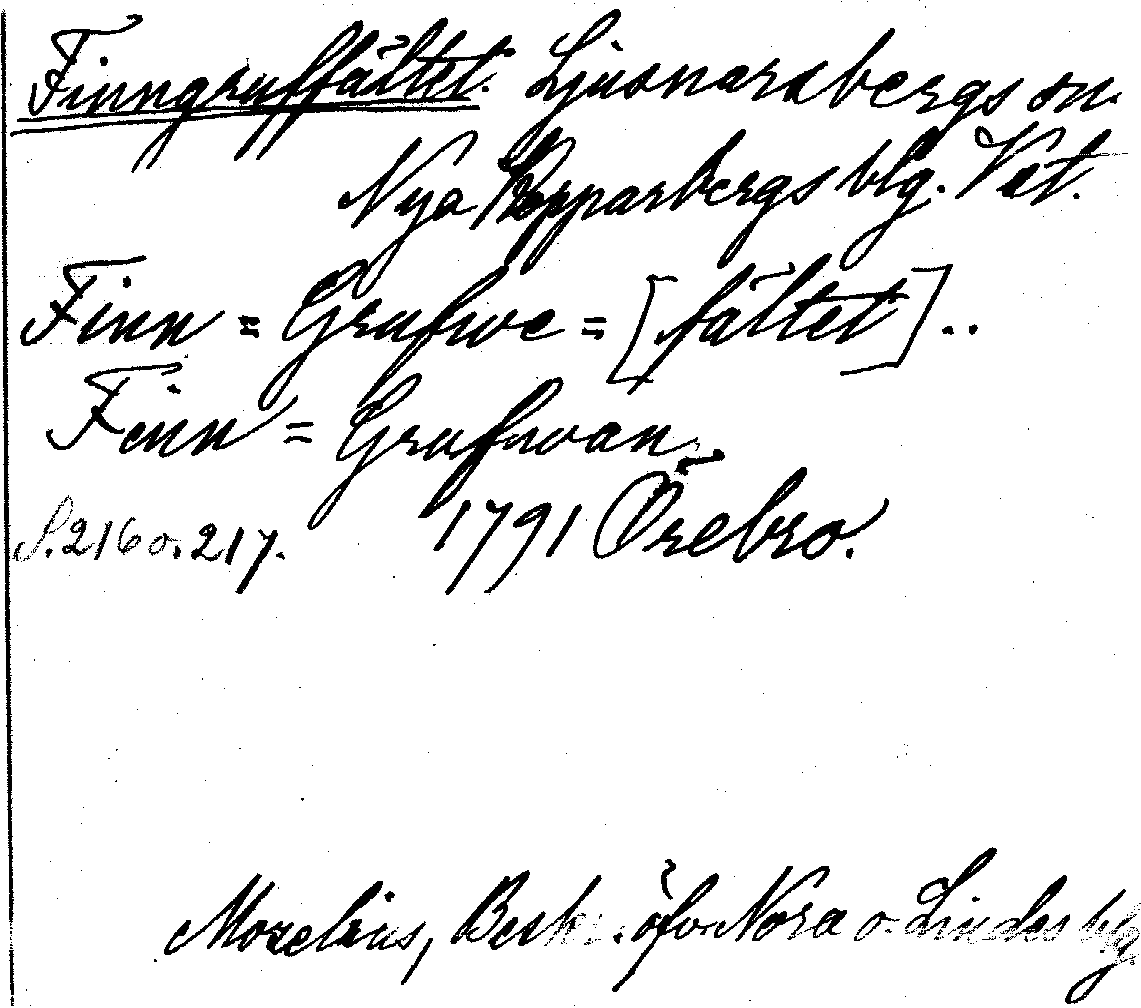 Finngruffältet. Ljusnarsbergs sn.
Nya Kopparbergs blg. Vst.
Finn = Grufwe = [fältet]..
Finn = Grufwan
S. 216 o. 217. 1791 Örebro.
Mozelius, Beskr. öfv. Nora o. Lindes blg